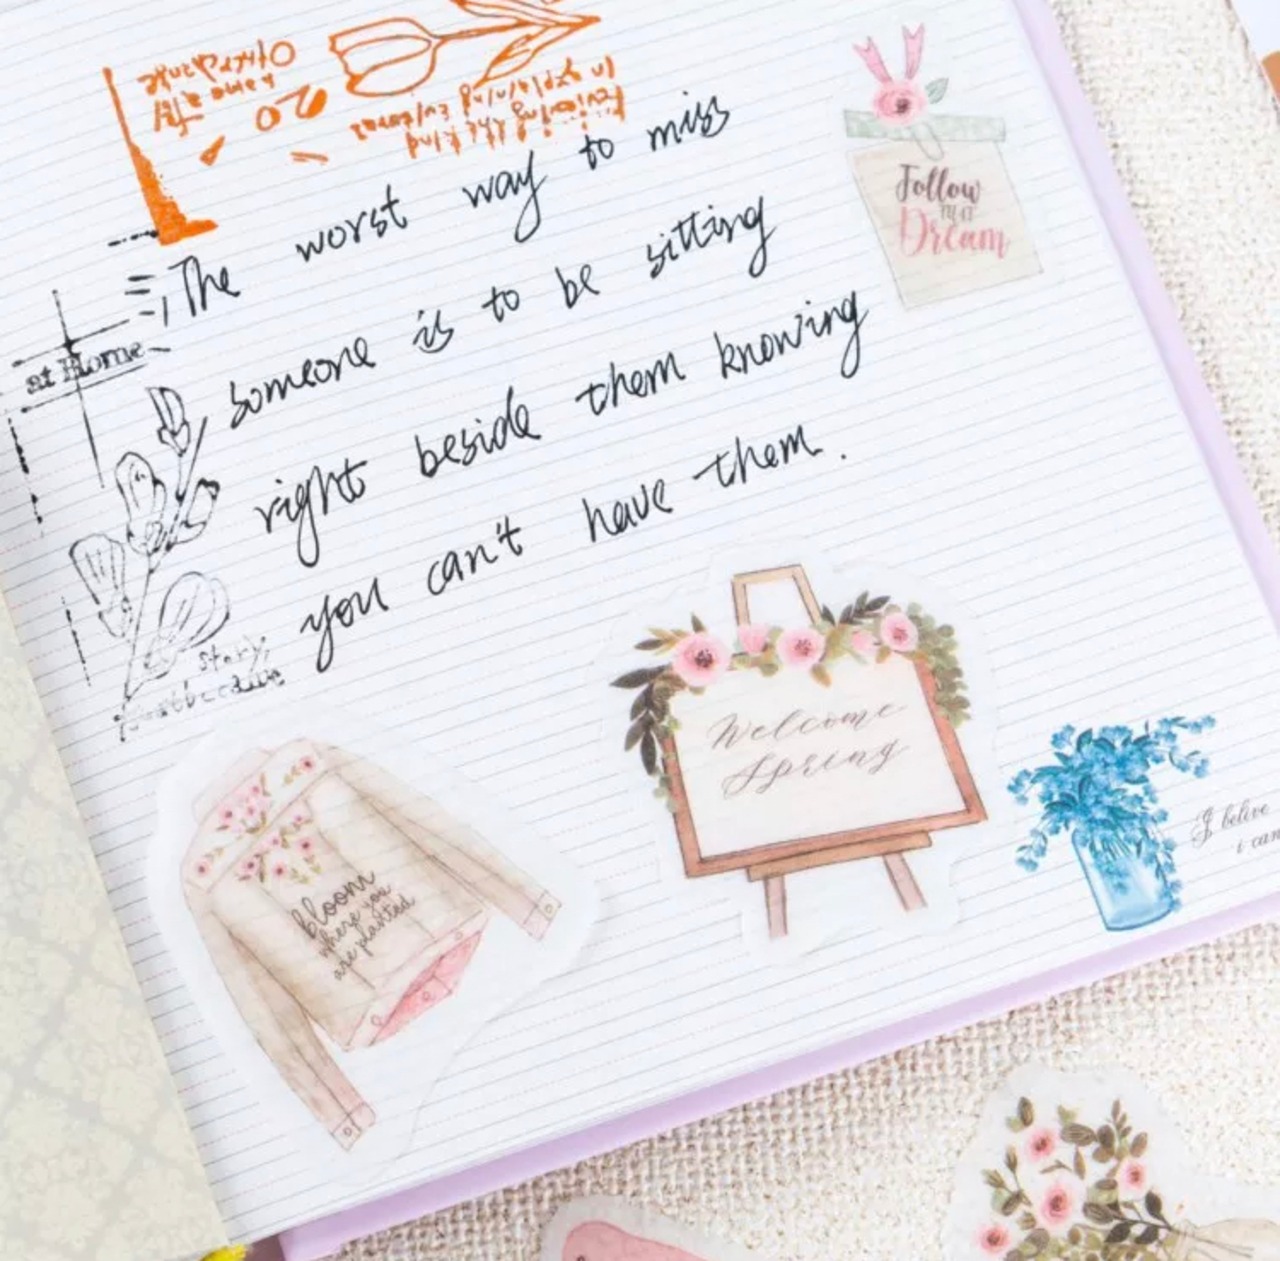 The worst way to miss
someone is to be sitting
right beside them knowing
you can't have them.
Follow
Dream
at Home
story,
Welcome
Spring
bloom
where you
are planted
I belive
i can